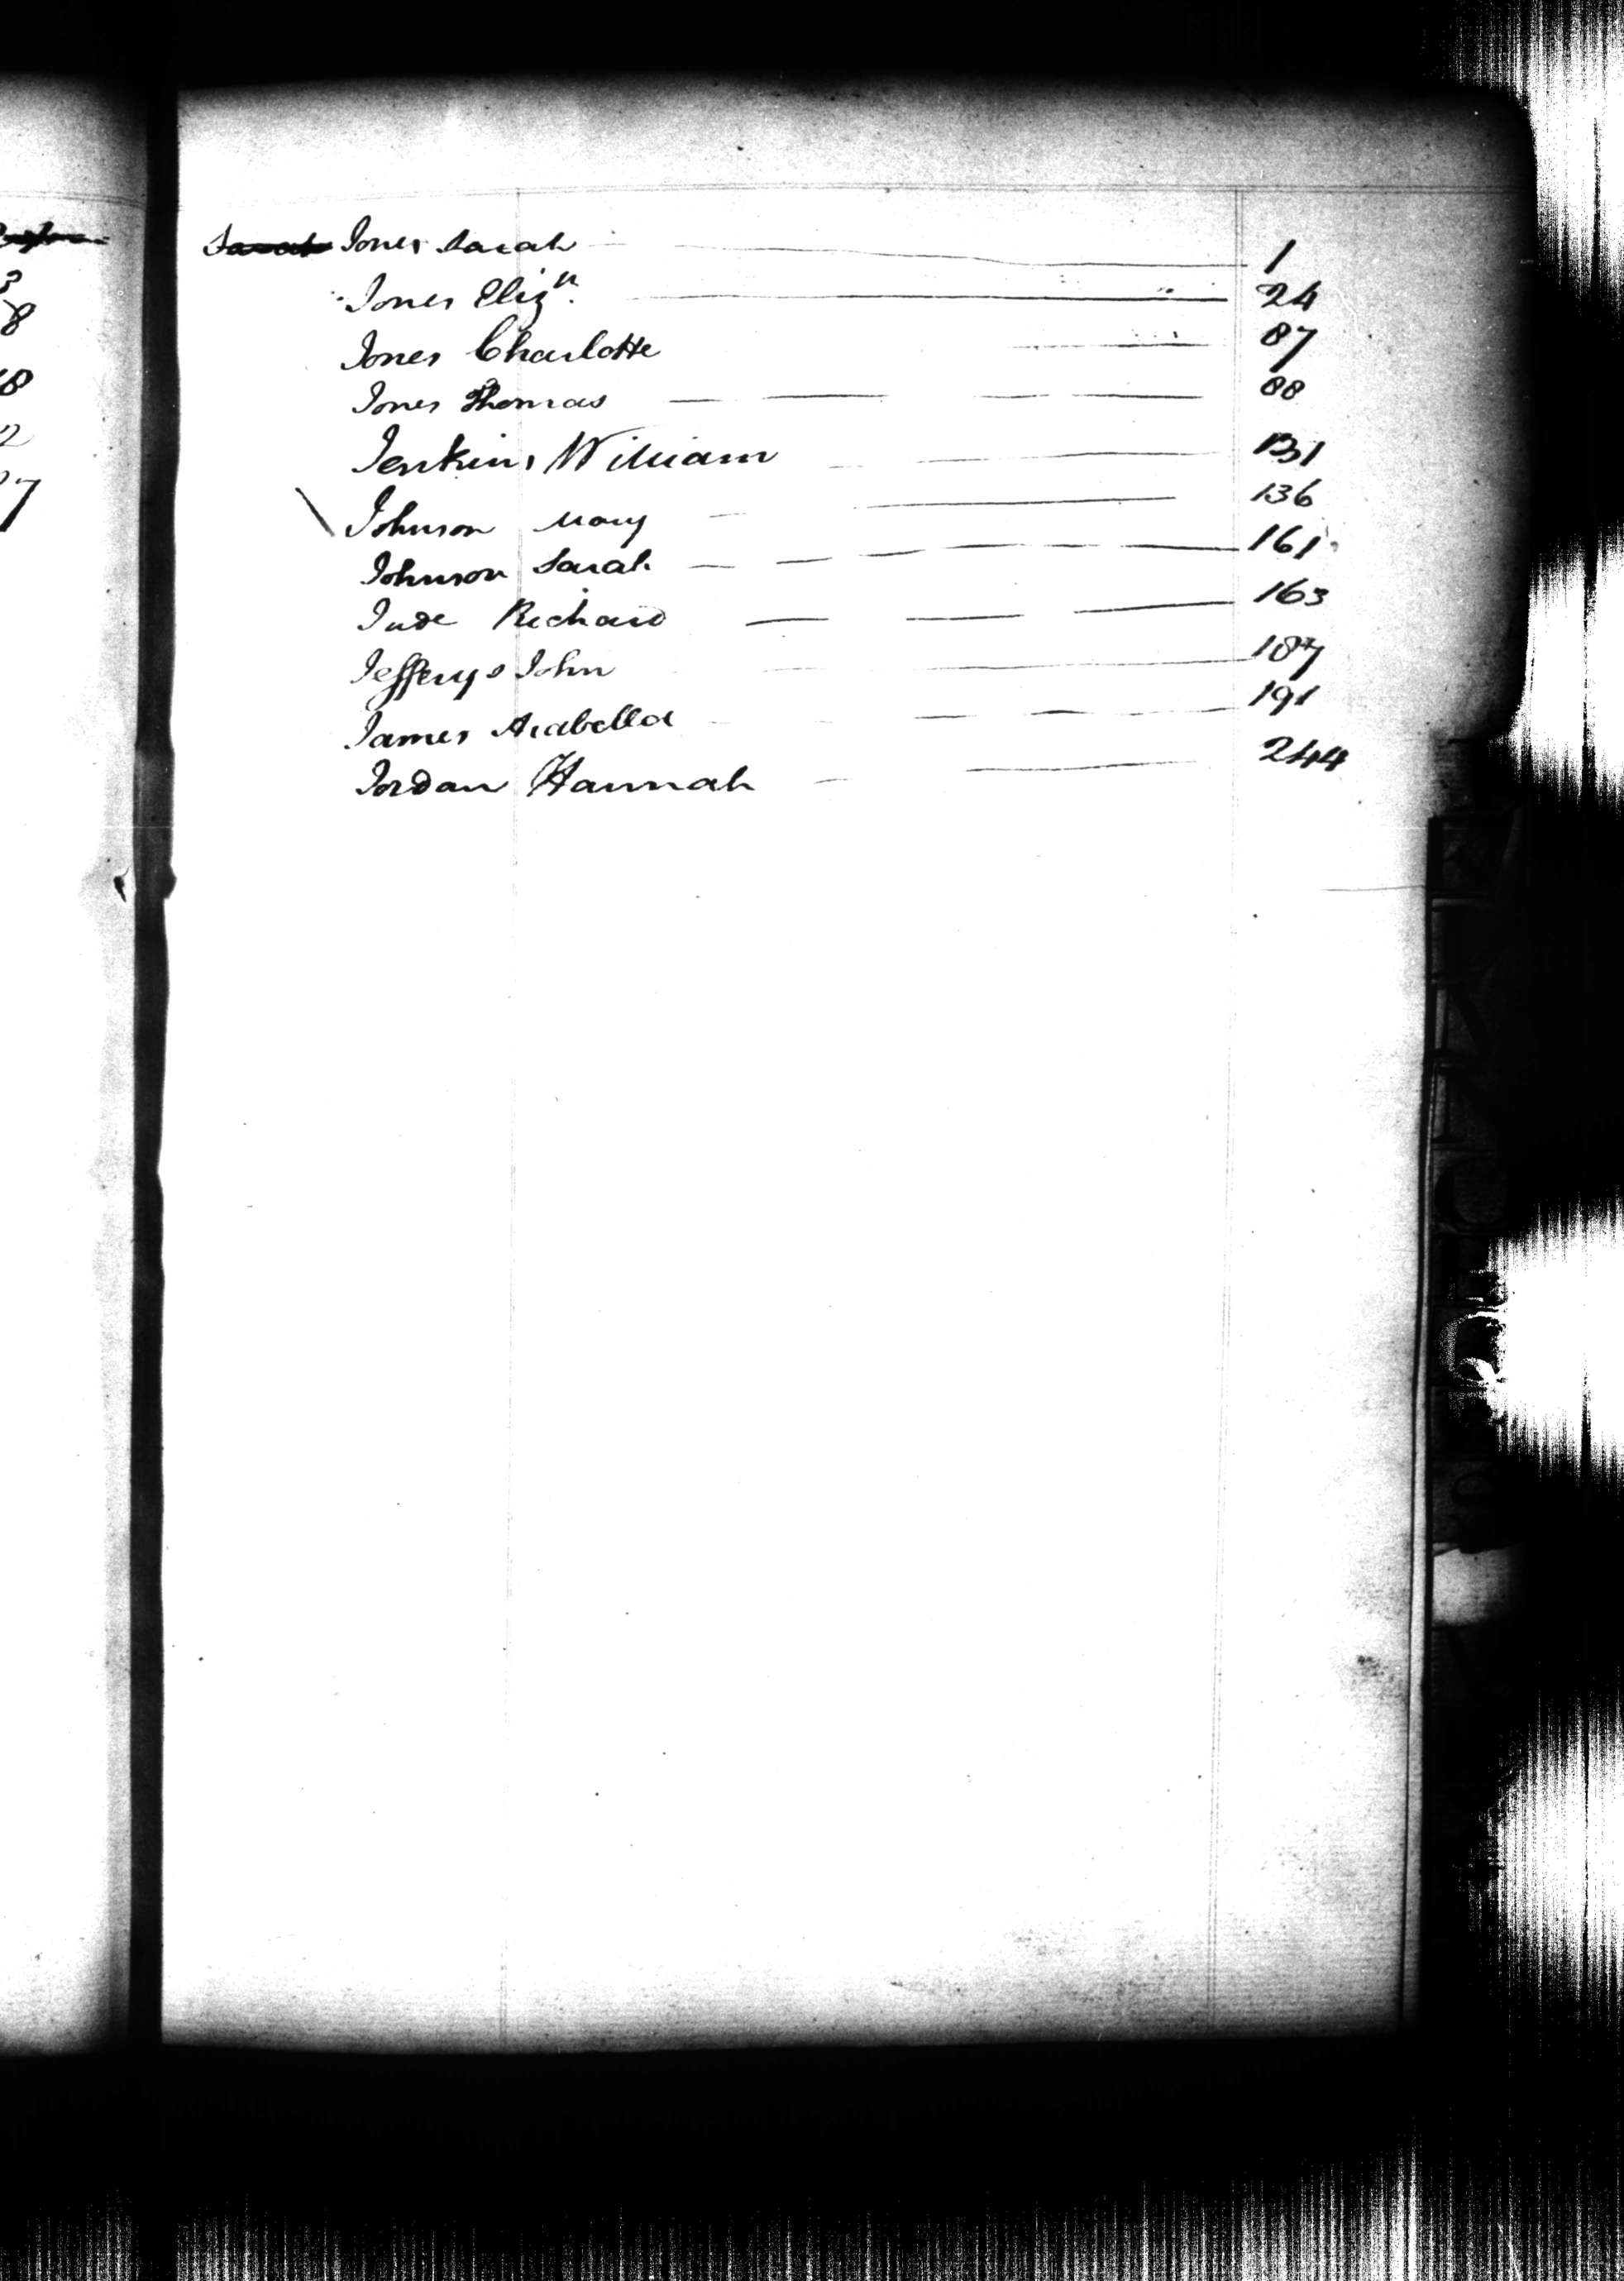 Sarah Jones Sarah 1
Jones Eliz.h 24
Jones Charlotte 87
Jones Thomas 88
Jenkins William 131
Johnson Mary 136
Johnson Sarah 161
Jude Richard 163
Jefferys John 187
James Arabella 191
Jordan Hannah 244